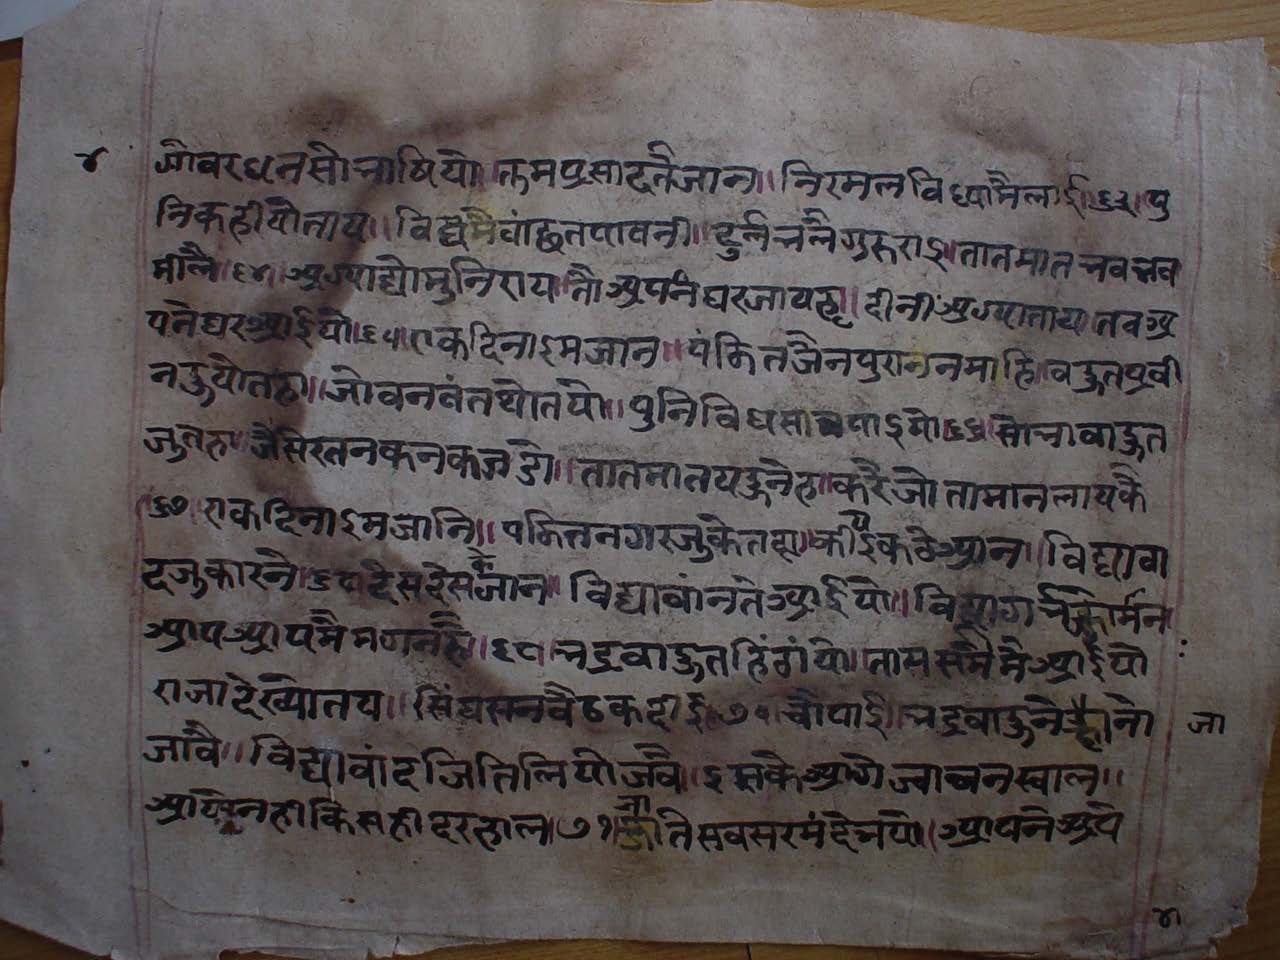 ४
गोवरधन सो भाषियो॥ तुम प्रसाद तै जान॥ निरमल विध्या मै लाई॥६३॥ पु
नि कही यो ताय॥ विद्य मै वांछत पावनी॥ दुर्लभ लै गुरुराइ॥ तात मात
मीलै॥६४॥ अग्याद्यो मुनिराय तौ अपने घर जाय हू॥ दीनी अग्या ताय॥ तव अ
पने घर आईयो॥६५॥ एक दिना इम जान॥ पंडित जैन पुरानन माहि॥ वहुत प्रवी
न हुयो तहा॥ जोवनवंत थो तयो॥ पुनि विध सा पाइयो॥६६॥ सो भावाहुत
जु तहा॥ जैसे रतन कनक जडो॥ तात मात यहु नेह॥ करै जो तामान लायकै
६७॥ एक दिना इम जानि॥ पंडित नगर जु के तहा॥ कीये इकठे आन॥ विद्यावा
द जु कारनै॥६८॥ देस देस के जान॥ विद्यावांन ते आईयो॥ विद्या गर्भ
आप आप मै मगन है॥६९॥ भद्रवाहु तहिं गंयो॥ तास समै मै आईयो
राजा देख्यो तय॥ सिंघासन वैठक दाई॥७०॥ चौपाई॥ भद्रवाहु नै
जा
जवै॥ विद्यावांद जिति लियो जवै॥ इसकै आगै ज्वावन स्वाल॥
आये नही किसही दरहाल॥७१॥ जीते सव सरमंदे भयो॥ आपने अपे
४